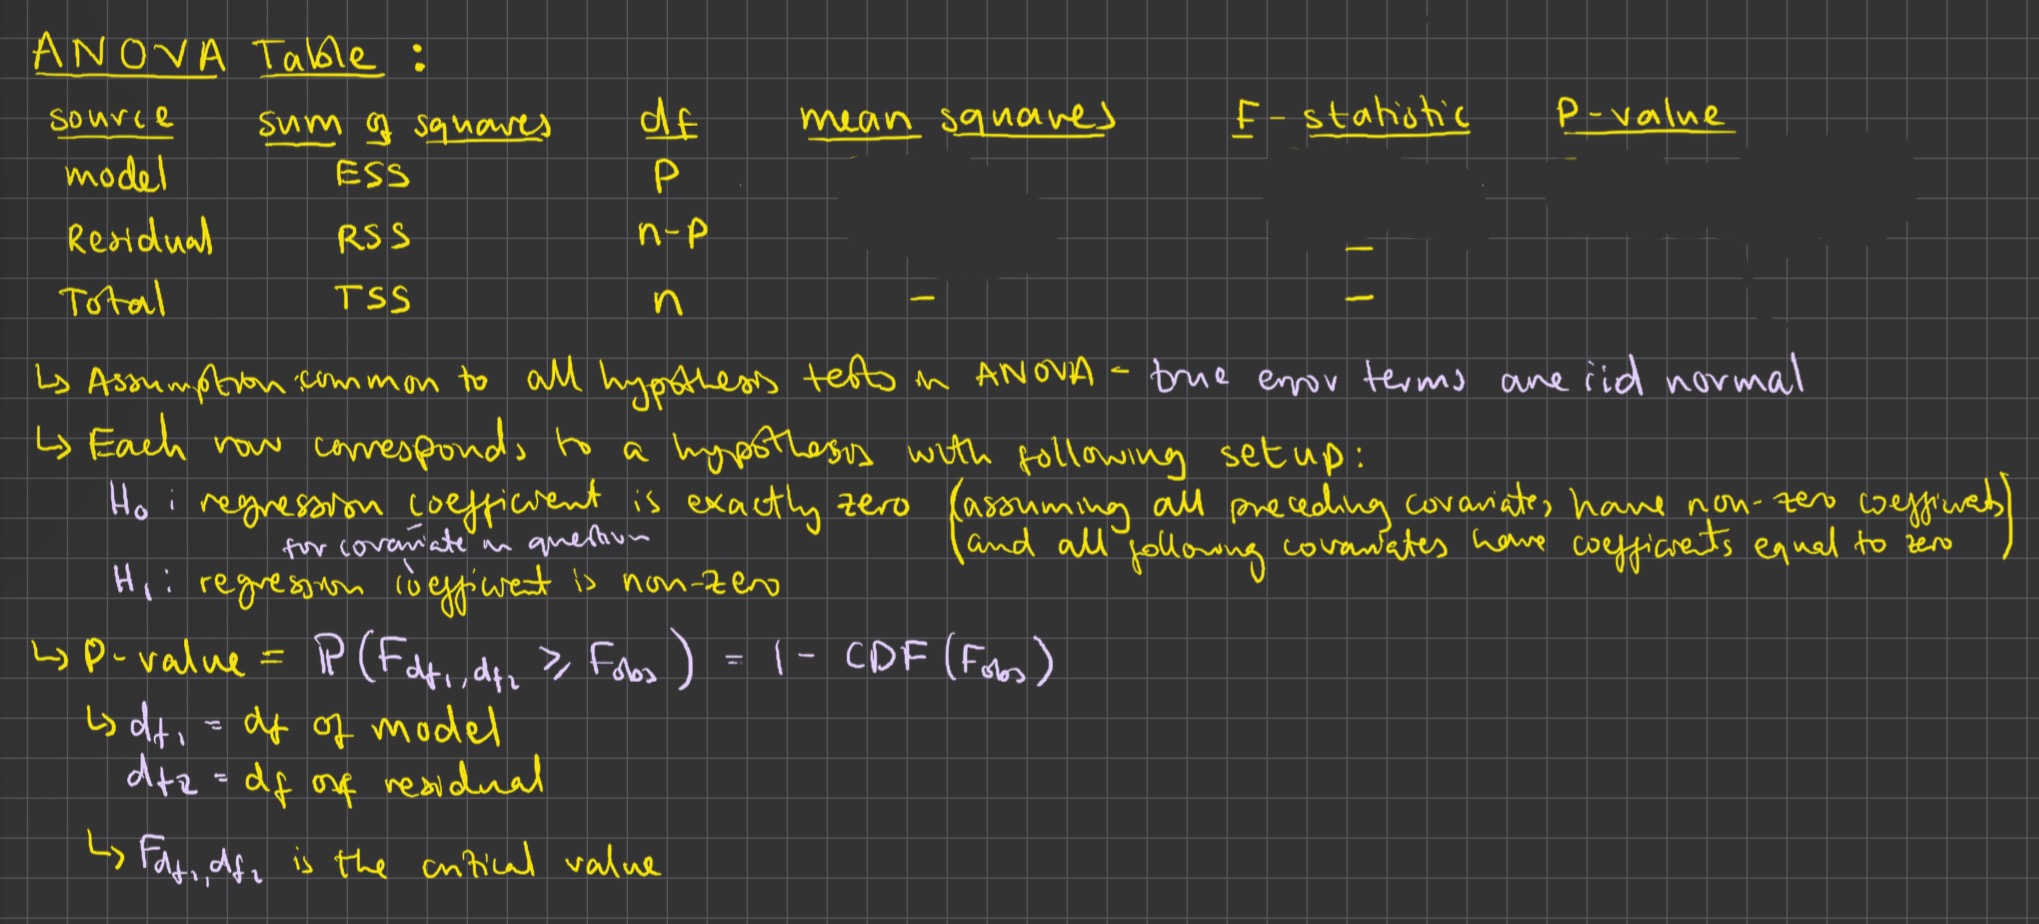 ANOVA Table :
source sum of squares df mean squares F-statistic P-value
model ESS P
Residual RSS n-P –
Total TSS n – –
↳ Assumption common to all hypothesis tests in ANOVA - true error terms are iid normal
↳ Each row corresponds to a hypothesis with following setup:
H₀ : regression coefficient is exactly zero (assuming all preceding covariates have non-zero coefficients
for covariate in question and all following covariates have coefficients equal to zero)
H₁ : regression coefficient is non-zero
↳ P-value = ℙ(F_df₁,df₂ ≥ F_obs) = 1 - CDF(F_obs)
↳ df₁ = df of model
df2 = df of residual
↳ F_df₁,df₂ is the critical value